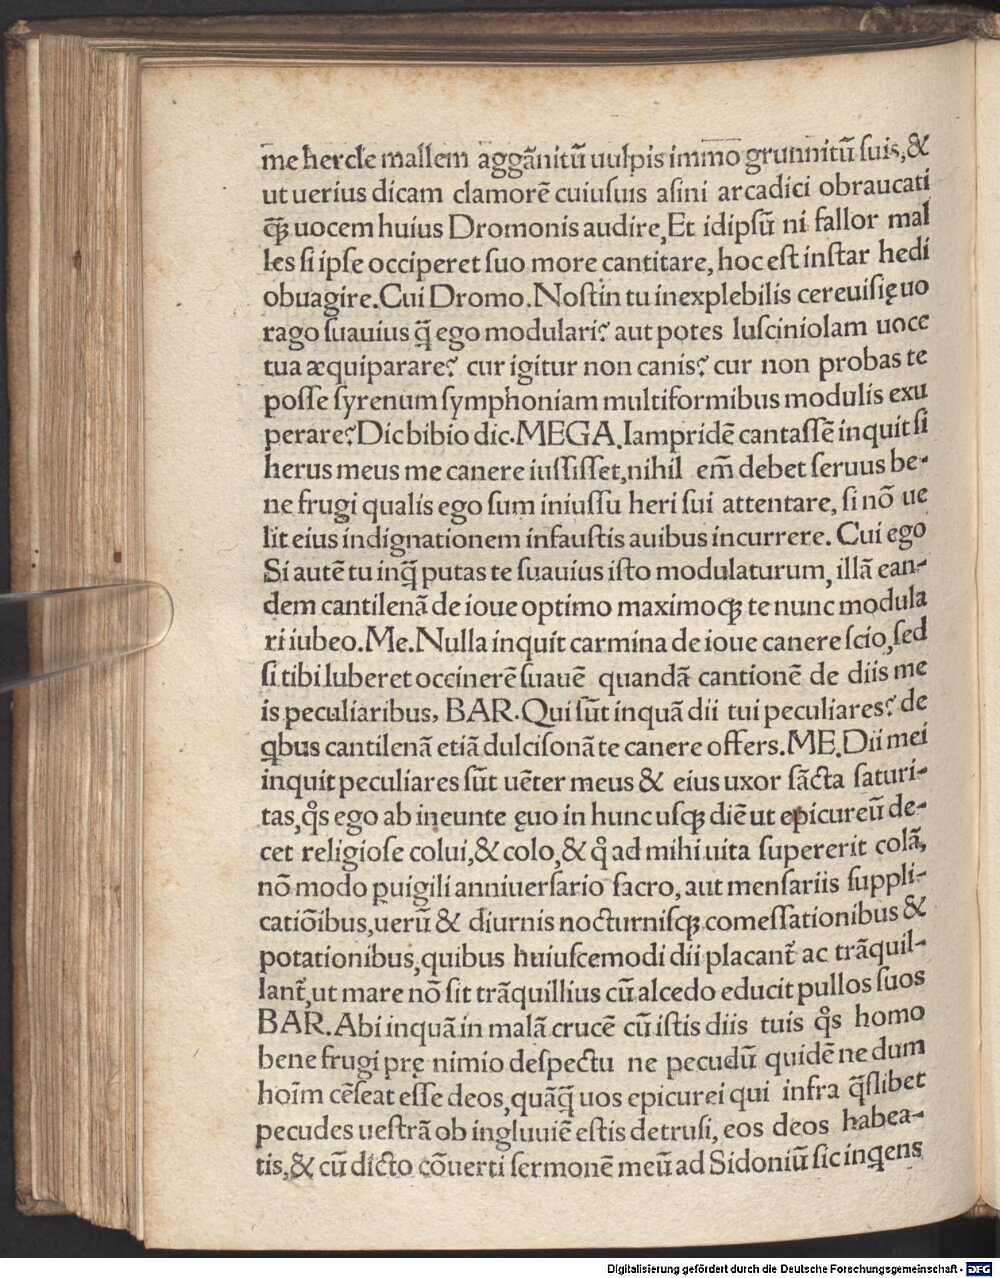 me hercle mallem aggãnitũ uulpis immo grunnitũ suis,&
ut uerius dicam clamorẽ cuiusuis asini arcadici obraucati
q̃ꝫ uocem huius Dromonis audire,Et idipsũ ni fallor mal
les si ipse occiperet suo more cantitare, hoc est instar hedi
obuagire.Cui Dromo.Nostin tu inexplebilis cereuisię uo
rago suauius q̃ ego modulari? aut potes lusciniolam uoce
tua æquiparare? cur igitur non canis? cur non probas te
posse syrenum symphoniam multiformibus modulis exu
perare?Dic bibio dic.MEGA.Iampridẽ cantassẽ inquit si
herus meus me canere iussisset,nihil em̃ debet seruus be-
ne frugi qualis ego sum iniussu heri sui attentare, si nõ ue
lit eius indignationem infaustis auibus incurrere. Cui ego
Si autẽ tu inq̃ putas te suauius isto modulaturum, illã ean-
dem cantilenã de ioue optimo maximoqꝫ te nunc modula
ri iubeo.Me.Nulla inquit carmina de ioue canere scio,sed
si tibi luberet occinerẽ suauẽ quandã cantionẽ de diis me
is peculiaribus, BAR.Qui sũt inquã dii tui peculiares? de
qbus cantilenã etiã dulcisonã te canere offers.ME.Dii mei
inquit peculiares sũt uẽter meus & eius uxor sãcta saturi-
tas,qͦs ego ab ineunte ęuo in hunc usqꝫ diẽ ut epicureũ de-
cet religiose colui,& colo,& qͦ ad mihi uita supererit colã,
nõ modo ꝑuigili anniuersario sacro, aut mensariis suppli-
catiõibus,uerũ & diurnis nocturnisqꝫ comessationibus &
potationibus,quibus huiuscemodi dii placant̃ ac trãquil-
lant̃,ut mare nõ sit trãquillius cũ alcedo educit pullos suos
BAR.Abi inquã in malã crucẽ cũ istis diis tuis qͦs homo
bene frugi prę nimio despectu ne pecudũ quidẽ nedum
hoīm cẽseat esse deos,quãq̃ uos epicurei qui infra q̃slibet
pecudes uestrã ob ingluuiẽ estis detrusi, eos deos habea-
tis,& cũ dicto cõuerti sermonẽ meũ ad Sidoniũ sic inqens
Digitalisierung gefördert durch die Deutsche Forschungsgemeinschaft - DFG